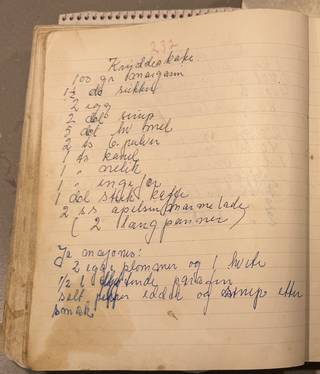 237
Krydderkake.
100 gr margarin
1½ do sukker
2 egg
2 del sirup
5 del hv mel
2 ts b. pulver
1 ts kanel
1 " nellik
1 " ingefær
1 del sterk kaffe
2 ss apelsinmarmelade
( 2 langpanner )
Ja majones:
2 eggeplommer og 1 hvite
½ l paragin
salt pepper eddik og sirup etter
smak